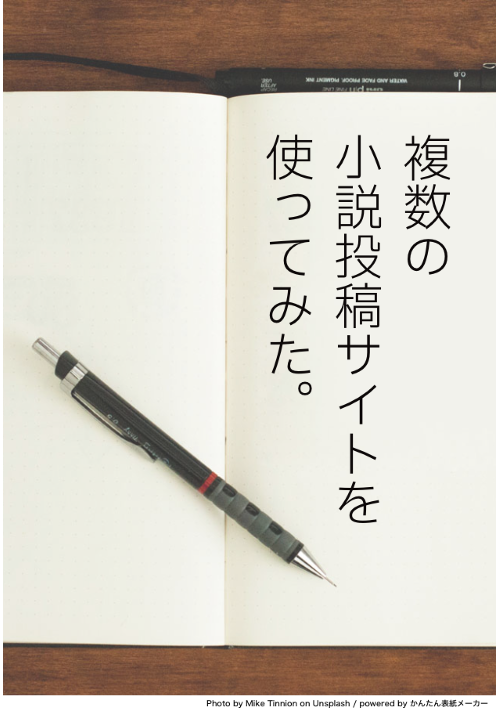 複数の
小説投稿サイトを
使ってみた。
WATER AND FADE PROOF, PIGMENT INK
uni pin FINE LINE
0.8
Photo by Mike Tinnion on Unsplash / powered by かんたん表紙メーカー